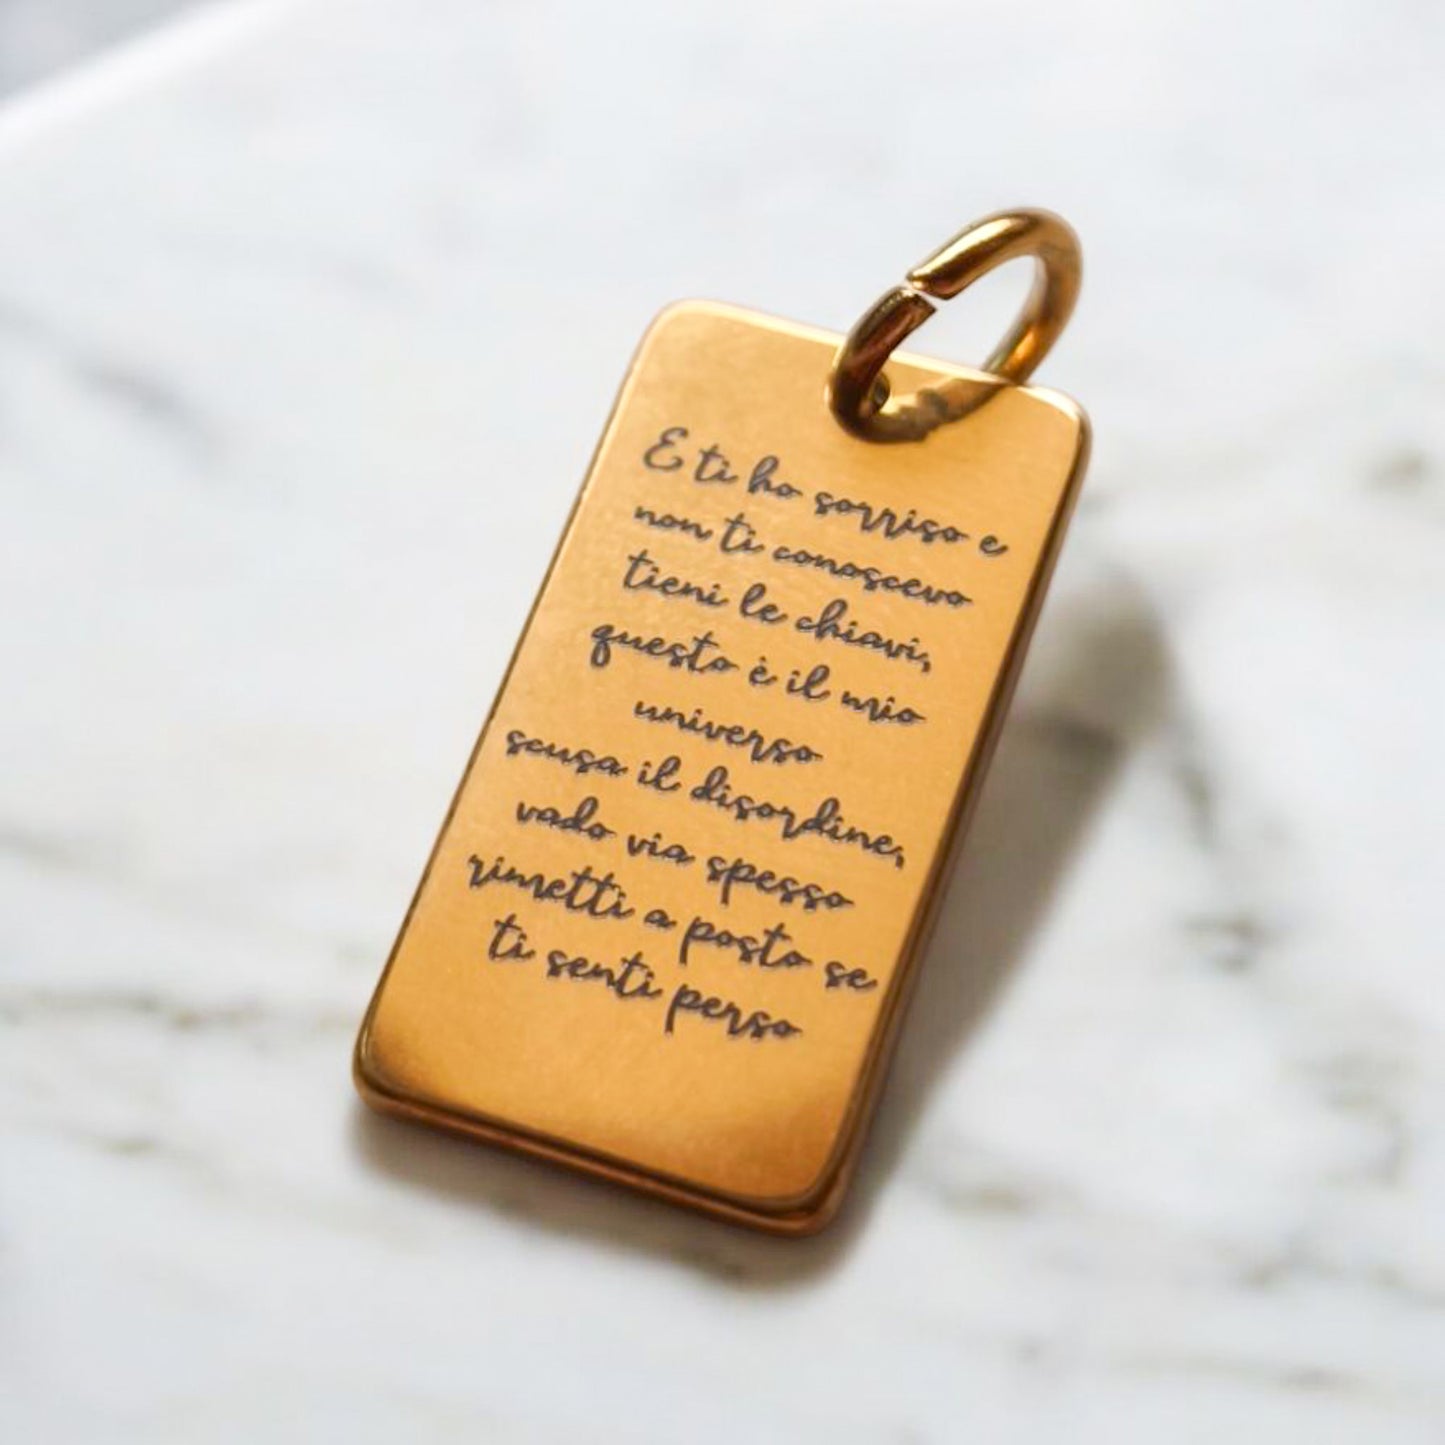 E ti ho sorriso e
non ti conoscevo
tieni le chiavi,
questo è il mio
universo
scusa il disordine,
vado via spesso
rimetti a posto se
ti senti perso